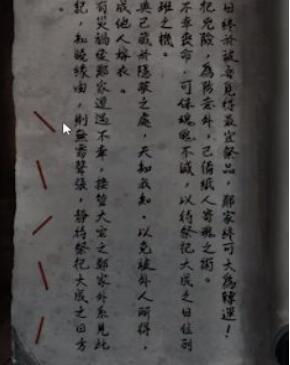 日終於被吾覓得最宜祭品，鄭家終可大為歸還！
祀兇險，為防意外，已備紙人寄魂之術。
不幸喪命，可保魂魄不滅，以待祭祀大成之日位列
班之機。
與已藏於隱蔽之處，天知我知。以免被外人所得，
成他人嫁衣。
有災禍使鄭家遭遇不幸，接管大宅之鄭家外系見此
記，知曉緣由，則無需聲張，靜待祭祀大成之日方
。